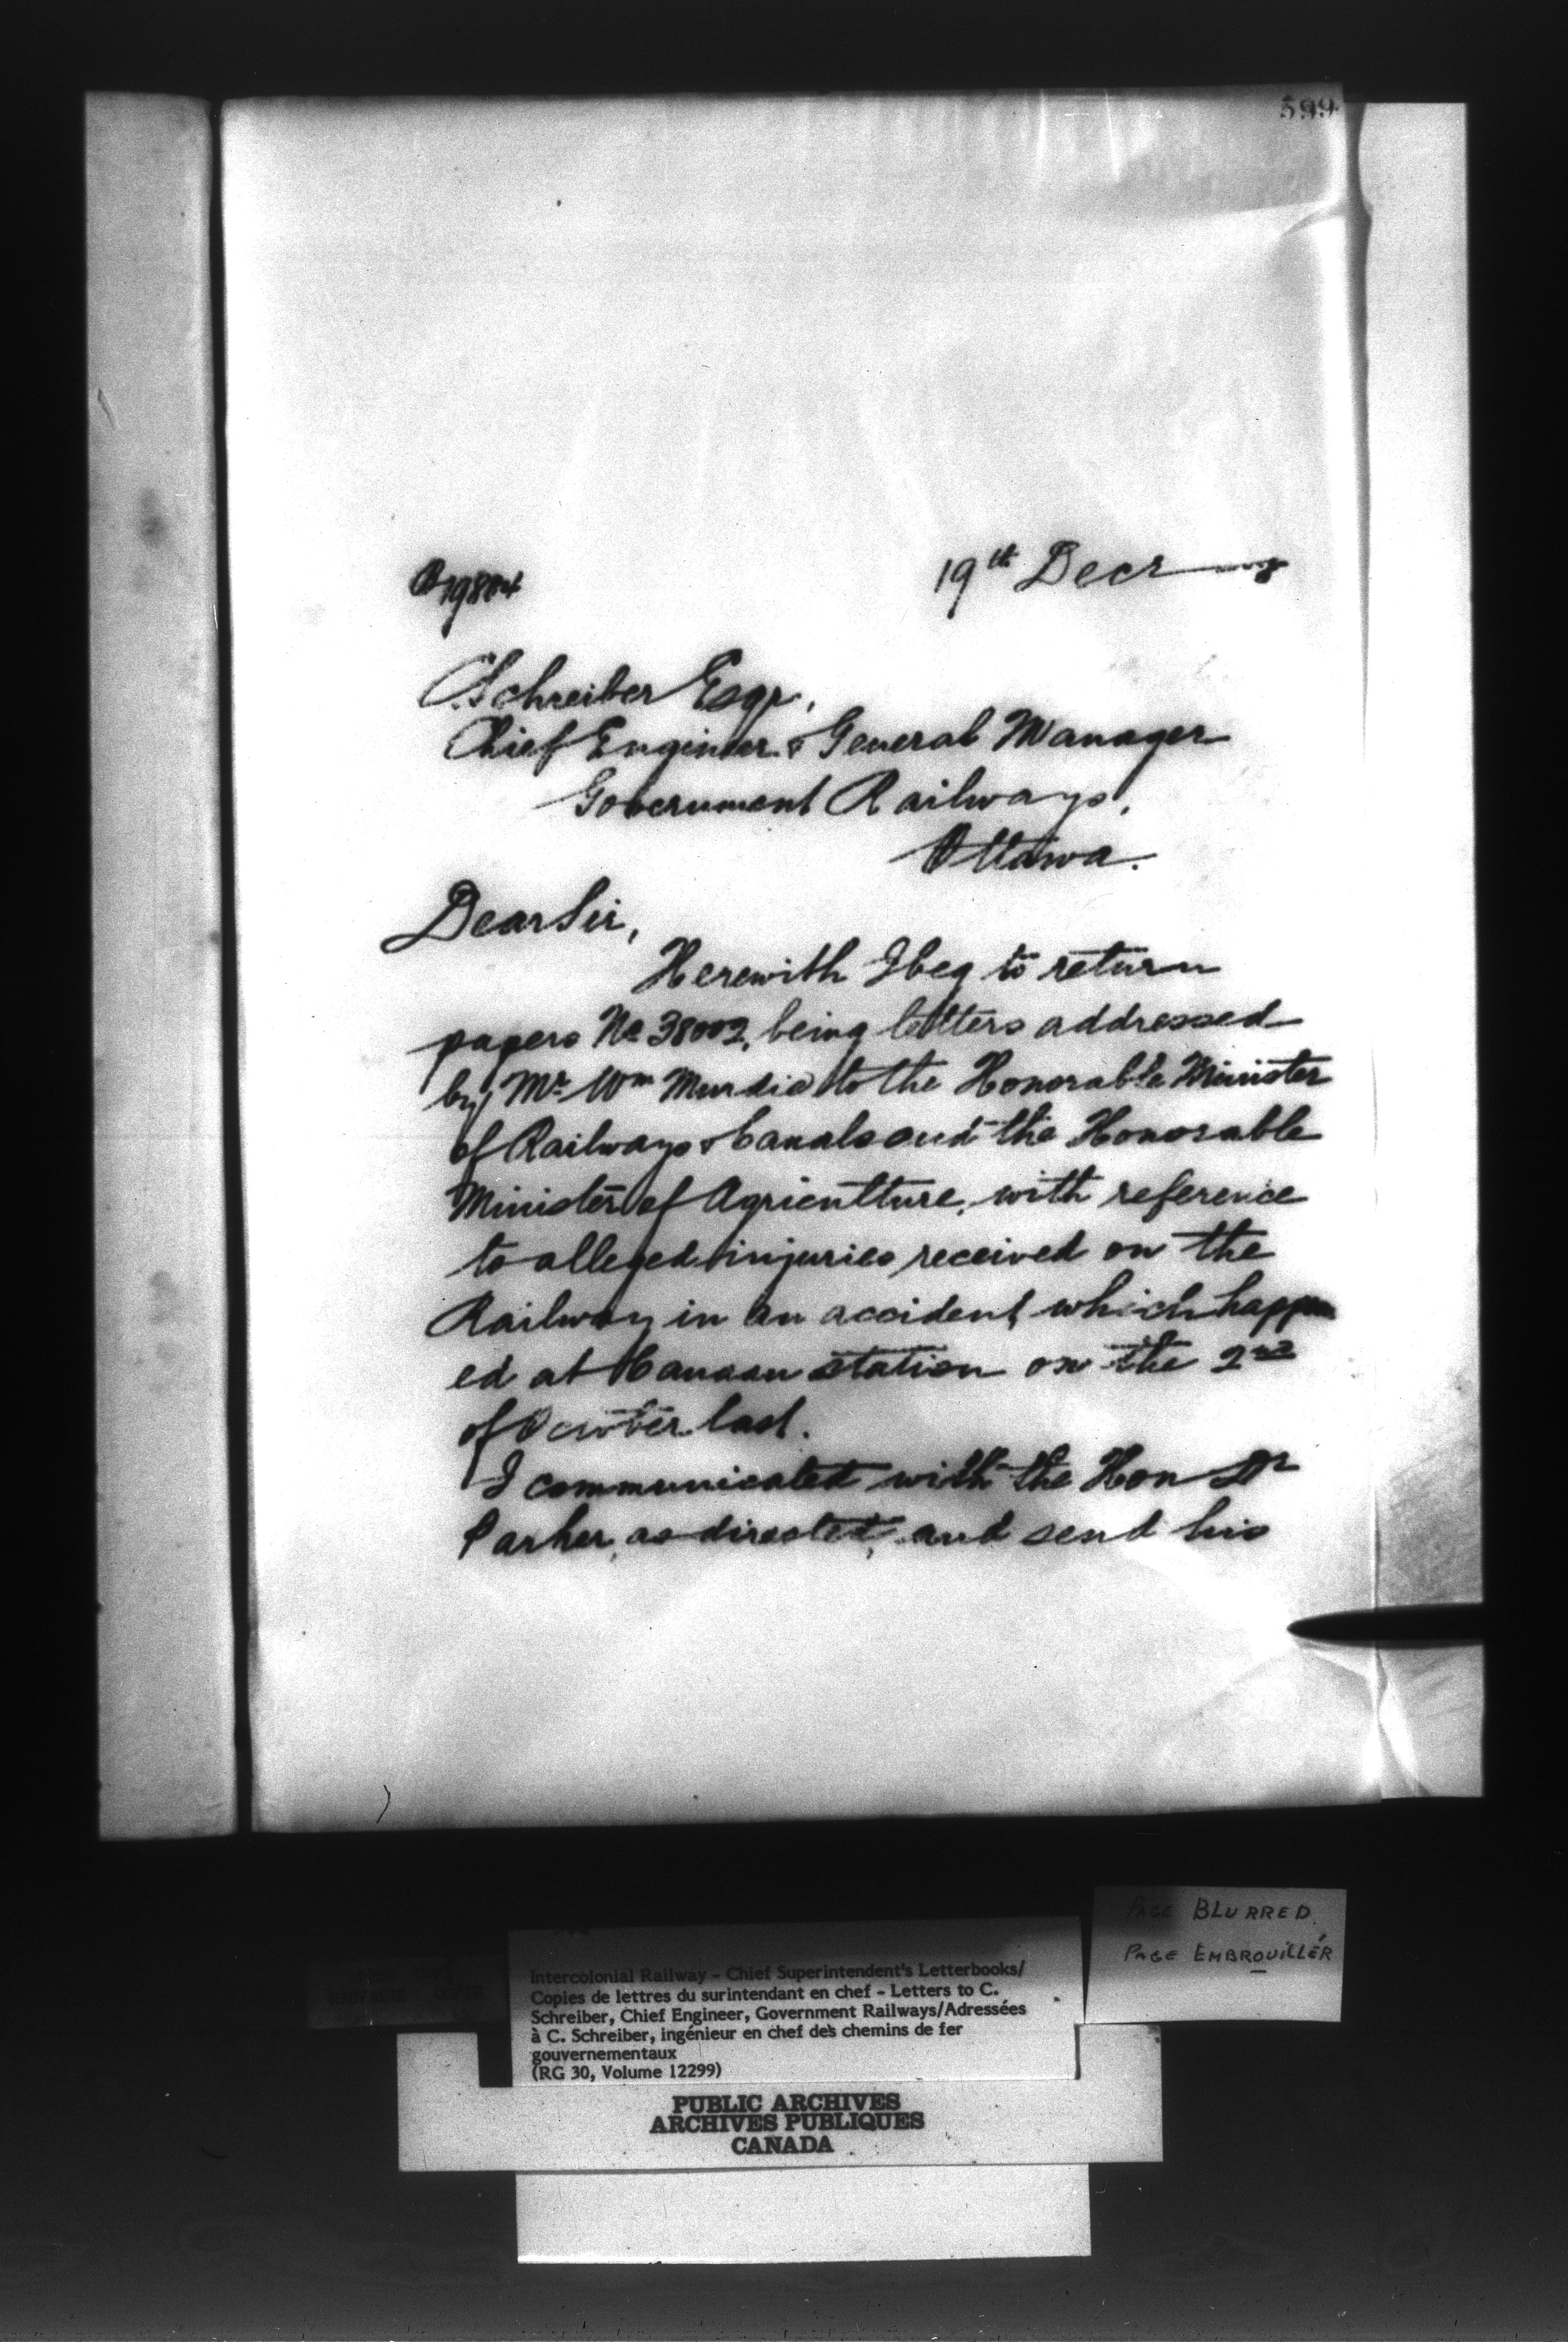 599
19th Decr
C. Schreiber Esqr,
Chief Engineer & General Manager
Government Railways,
Ottawa.
Dear Sir,
Herewith I beg to return
papers No 38002, being letters addressed
by Mr. Wm Murdie to the Honorable Minister
of Railways & Canals and the Honorable
Minister of Agriculture, with reference
to alleged injuries received on the
Railway in an accident which happen
ed at Canaan station on the 2nd
of October last.
I communicated with the Hon Dr
Parker, as directed, and send his
PAGE BLURRED
PAGE EMBROUILLÉR
Intercolonial Railway - Chief Superintendent's Letterbooks/
Copies de lettres du surintendant en chef - Letters to C.
Schreiber, Chief Engineer, Government Railways/Adressées
à C. Schreiber, ingénieur en chef des chemins de fer
gouvernementaux
(RG 30, Volume 12299)
PUBLIC ARCHIVES
ARCHIVES PUBLIQUES
CANADA